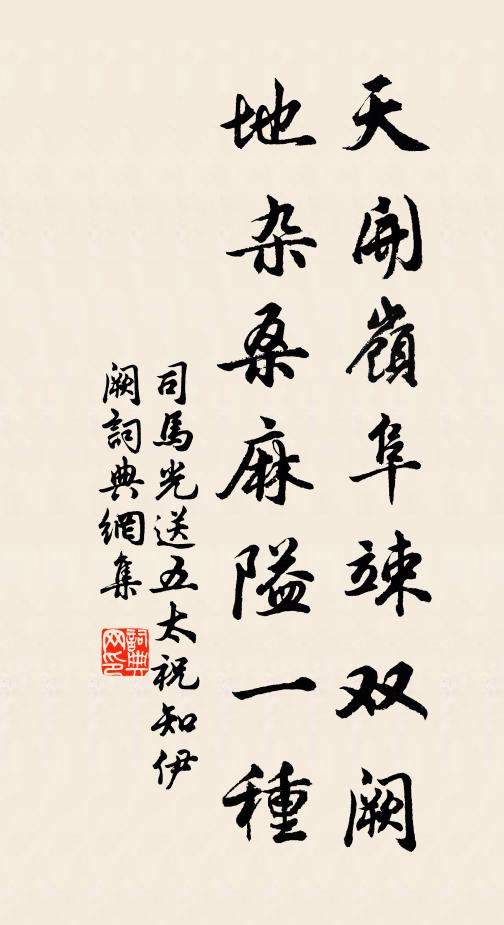 天開嶺阜竦双阙
地杂桑麻隘一種
司馬光送五太祝知伊
阙詞典網集
詞典网印